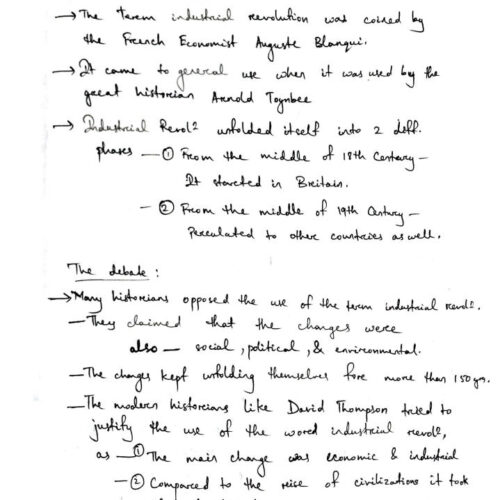 → The term industrial revolution was coined by
the French Economist Auguste Blanqui.
→ It came to general use when it was used by the
great historian Arnold Toynbee
→ Industrial Revol² unfolded itself into 2 diff.
phases — ① From the middle of 18th Century —
It started in Britain.
— ② From the middle of 19th Century —
Perculated to other countries as well.
The debate :
→ Many historians opposed the use of the term industrial revol².
— They claimed that the changes were
also — social, political, & environmental.
— The changes kept unfolding themselves for more than 150 yrs.
— The modern historians like David Thompson tried to
justify the use of the word industrial revol²,
as — ① The main change was economic & industrial
— ② Compared to the rise of civilizations it took